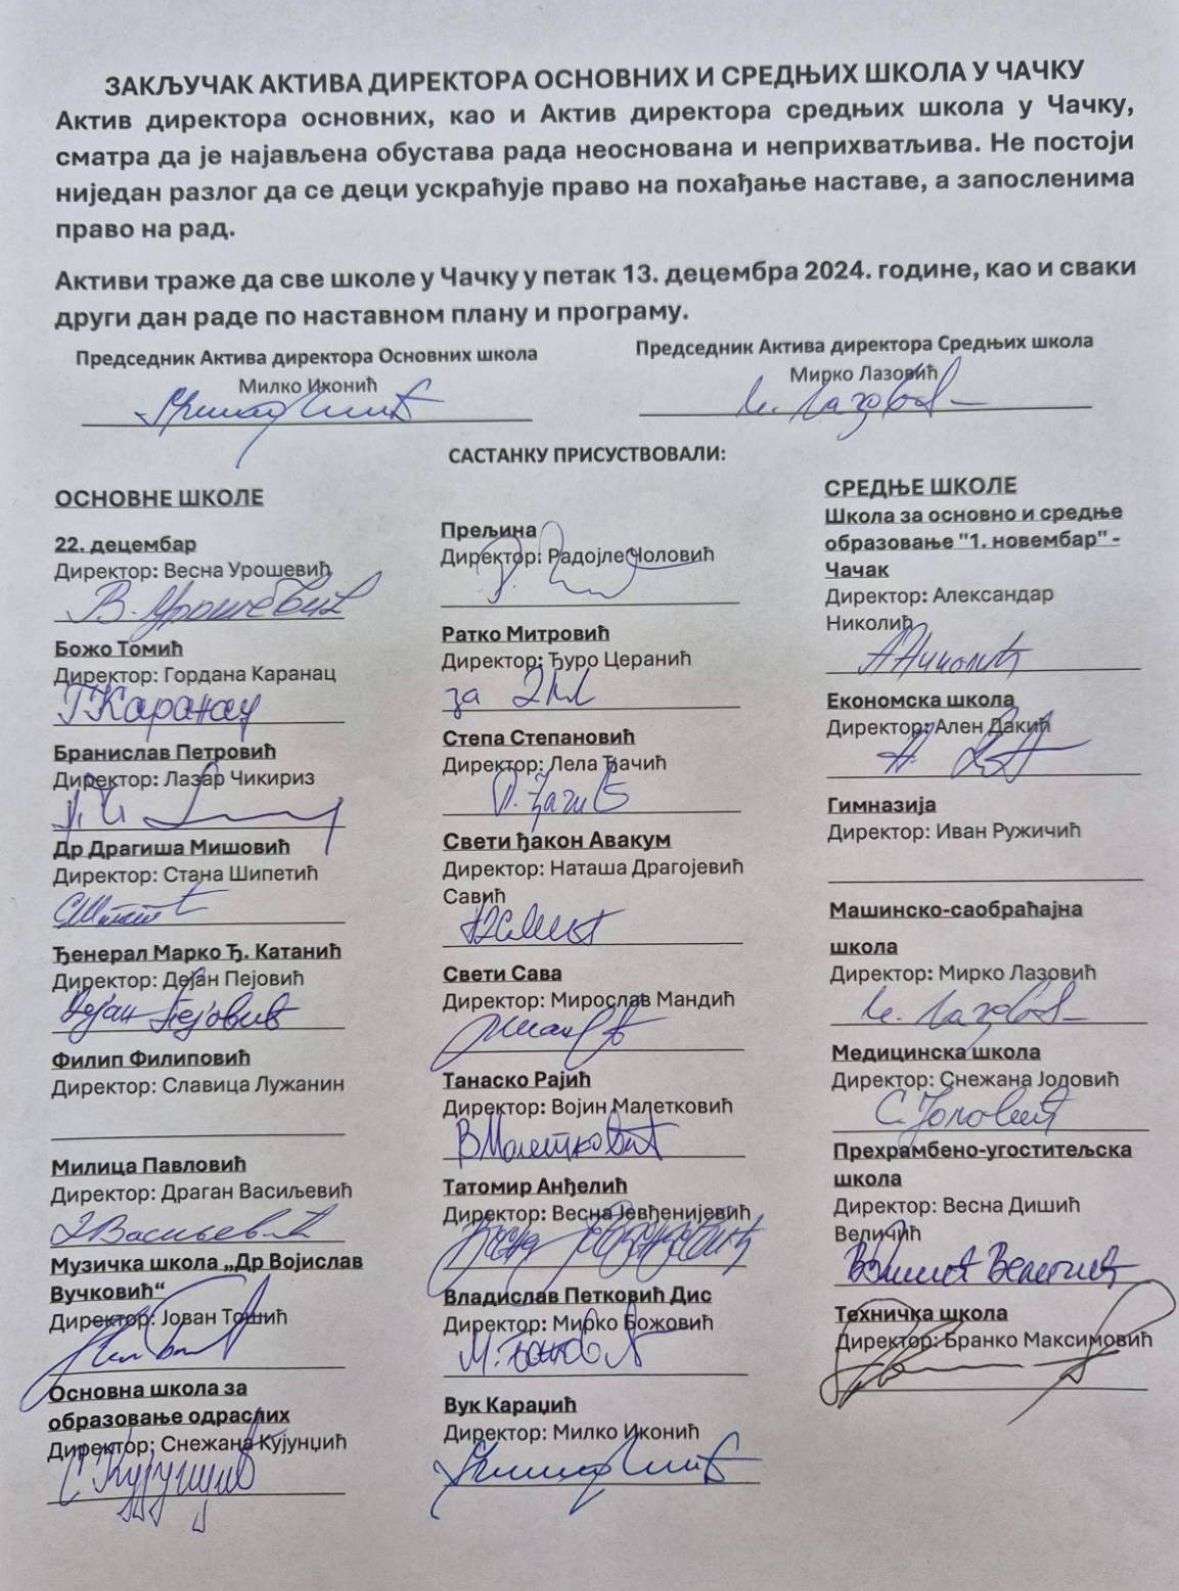 ЗАКЉУЧАК АКТИВА ДИРЕКТОРА ОСНОВНИХ И СРЕДЊИХ ШКОЛА У ЧАЧКУ
Актив директора основних, као и Актив директора средњих школа у Чачку,
сматра да је најављена обустава рада неоснована и неприхватљива. Не постоји
ниједан разлог да се деци ускраћује право на похађање наставе, а запосленима
право на рад.
Активи траже да све школе у Чачку у петак 13. децембра 2024. године, као и сваки
други дан раде по наставном плану и програму.
Председник Актива директора Основних школа
Милко Иконић
Председник Актива директора Средњих школа
Мирко Лазовић
М. Лазовић
САСТАНКУ ПРИСУСТВОВАЛИ:
ОСНОВНЕ ШКОЛЕ
22. децембар
Директор: Весна Урошевић
В. Урошевић
Божо Томић
Директор: Гордана Каранац
Г Каранац
Бранислав Петровић
Директор: Лазар Чикириз
Др Драгиша Мишовић
Директор: Стана Шипетић
Ђенерал Марко Ђ. Катанић
Директор: Дејан Пејовић
Дејан Пејовић
Филип Филиповић
Директор: Славица Лужанин
Милица Павловић
Директор: Драган Васиљевић
Д Васиљевић
Музичка школа „Др Војислав
Вучковић“
Директор: Јован Тошић
Основна школа за
образовање одраслих
Директор: Снежана Кујунџић
С Кујунџић
Прељина
Директор: Радојле Чоловић
Ратко Митровић
Директор: Ђуро Церанић
за
Степа Степановић
Директор: Лела Ђачић
Л. Ђачић
Свети ђакон Авакум
Директор: Наташа Драгојевић
Савић
Свети Сава
Директор: Мирослав Мандић
Танаско Рајић
Директор: Војин Малетковић
В Малетковић
Татомир Анђелић
Директор: Весна Јевђенијевић
Весна Јевђенијевић
Владислав Петковић Дис
Директор: Мирко Божовић
М. Божовић
Вук Караџић
Директор: Милко Иконић
СРЕДЊЕ ШКОЛЕ
Школа за основно и средње
образовање "1. новембар" -
Чачак
Директор: Александар
Николић
А Николић
Економска школа
Директор: Ален Дакић
Гимназија
Директор: Иван Ружичић
Машинско-саобраћајна
школа
Директор: Мирко Лазовић
М. Лазовић
Медицинска школа
Директор: Снежана Јоловић
С. Јоловић
Прехрамбено-угоститељска
школа
Директор: Весна Дишић
Величић
Техничка школа
Директор: Бранко Максимовић